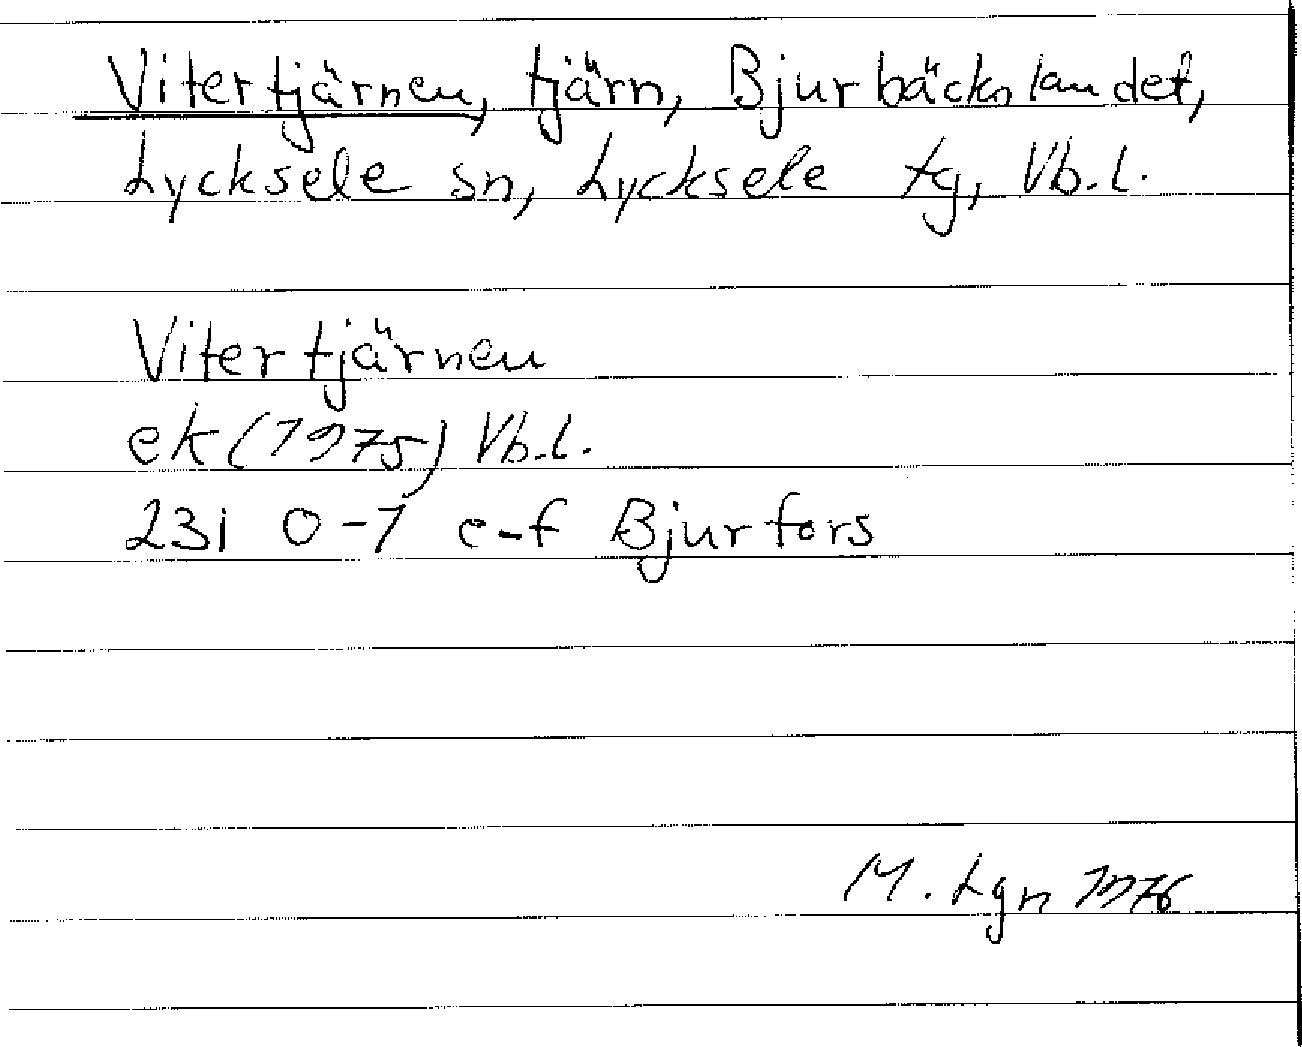 Vitertjärnen, tjärn, Bjurbäckslandet,
Lycksele sn, Lycksele tg, Vb.l.
Vitertjärnen
ek (1975) Vb.l.
23i 0-1 e-f Bjurfors
M. Lgn 1976